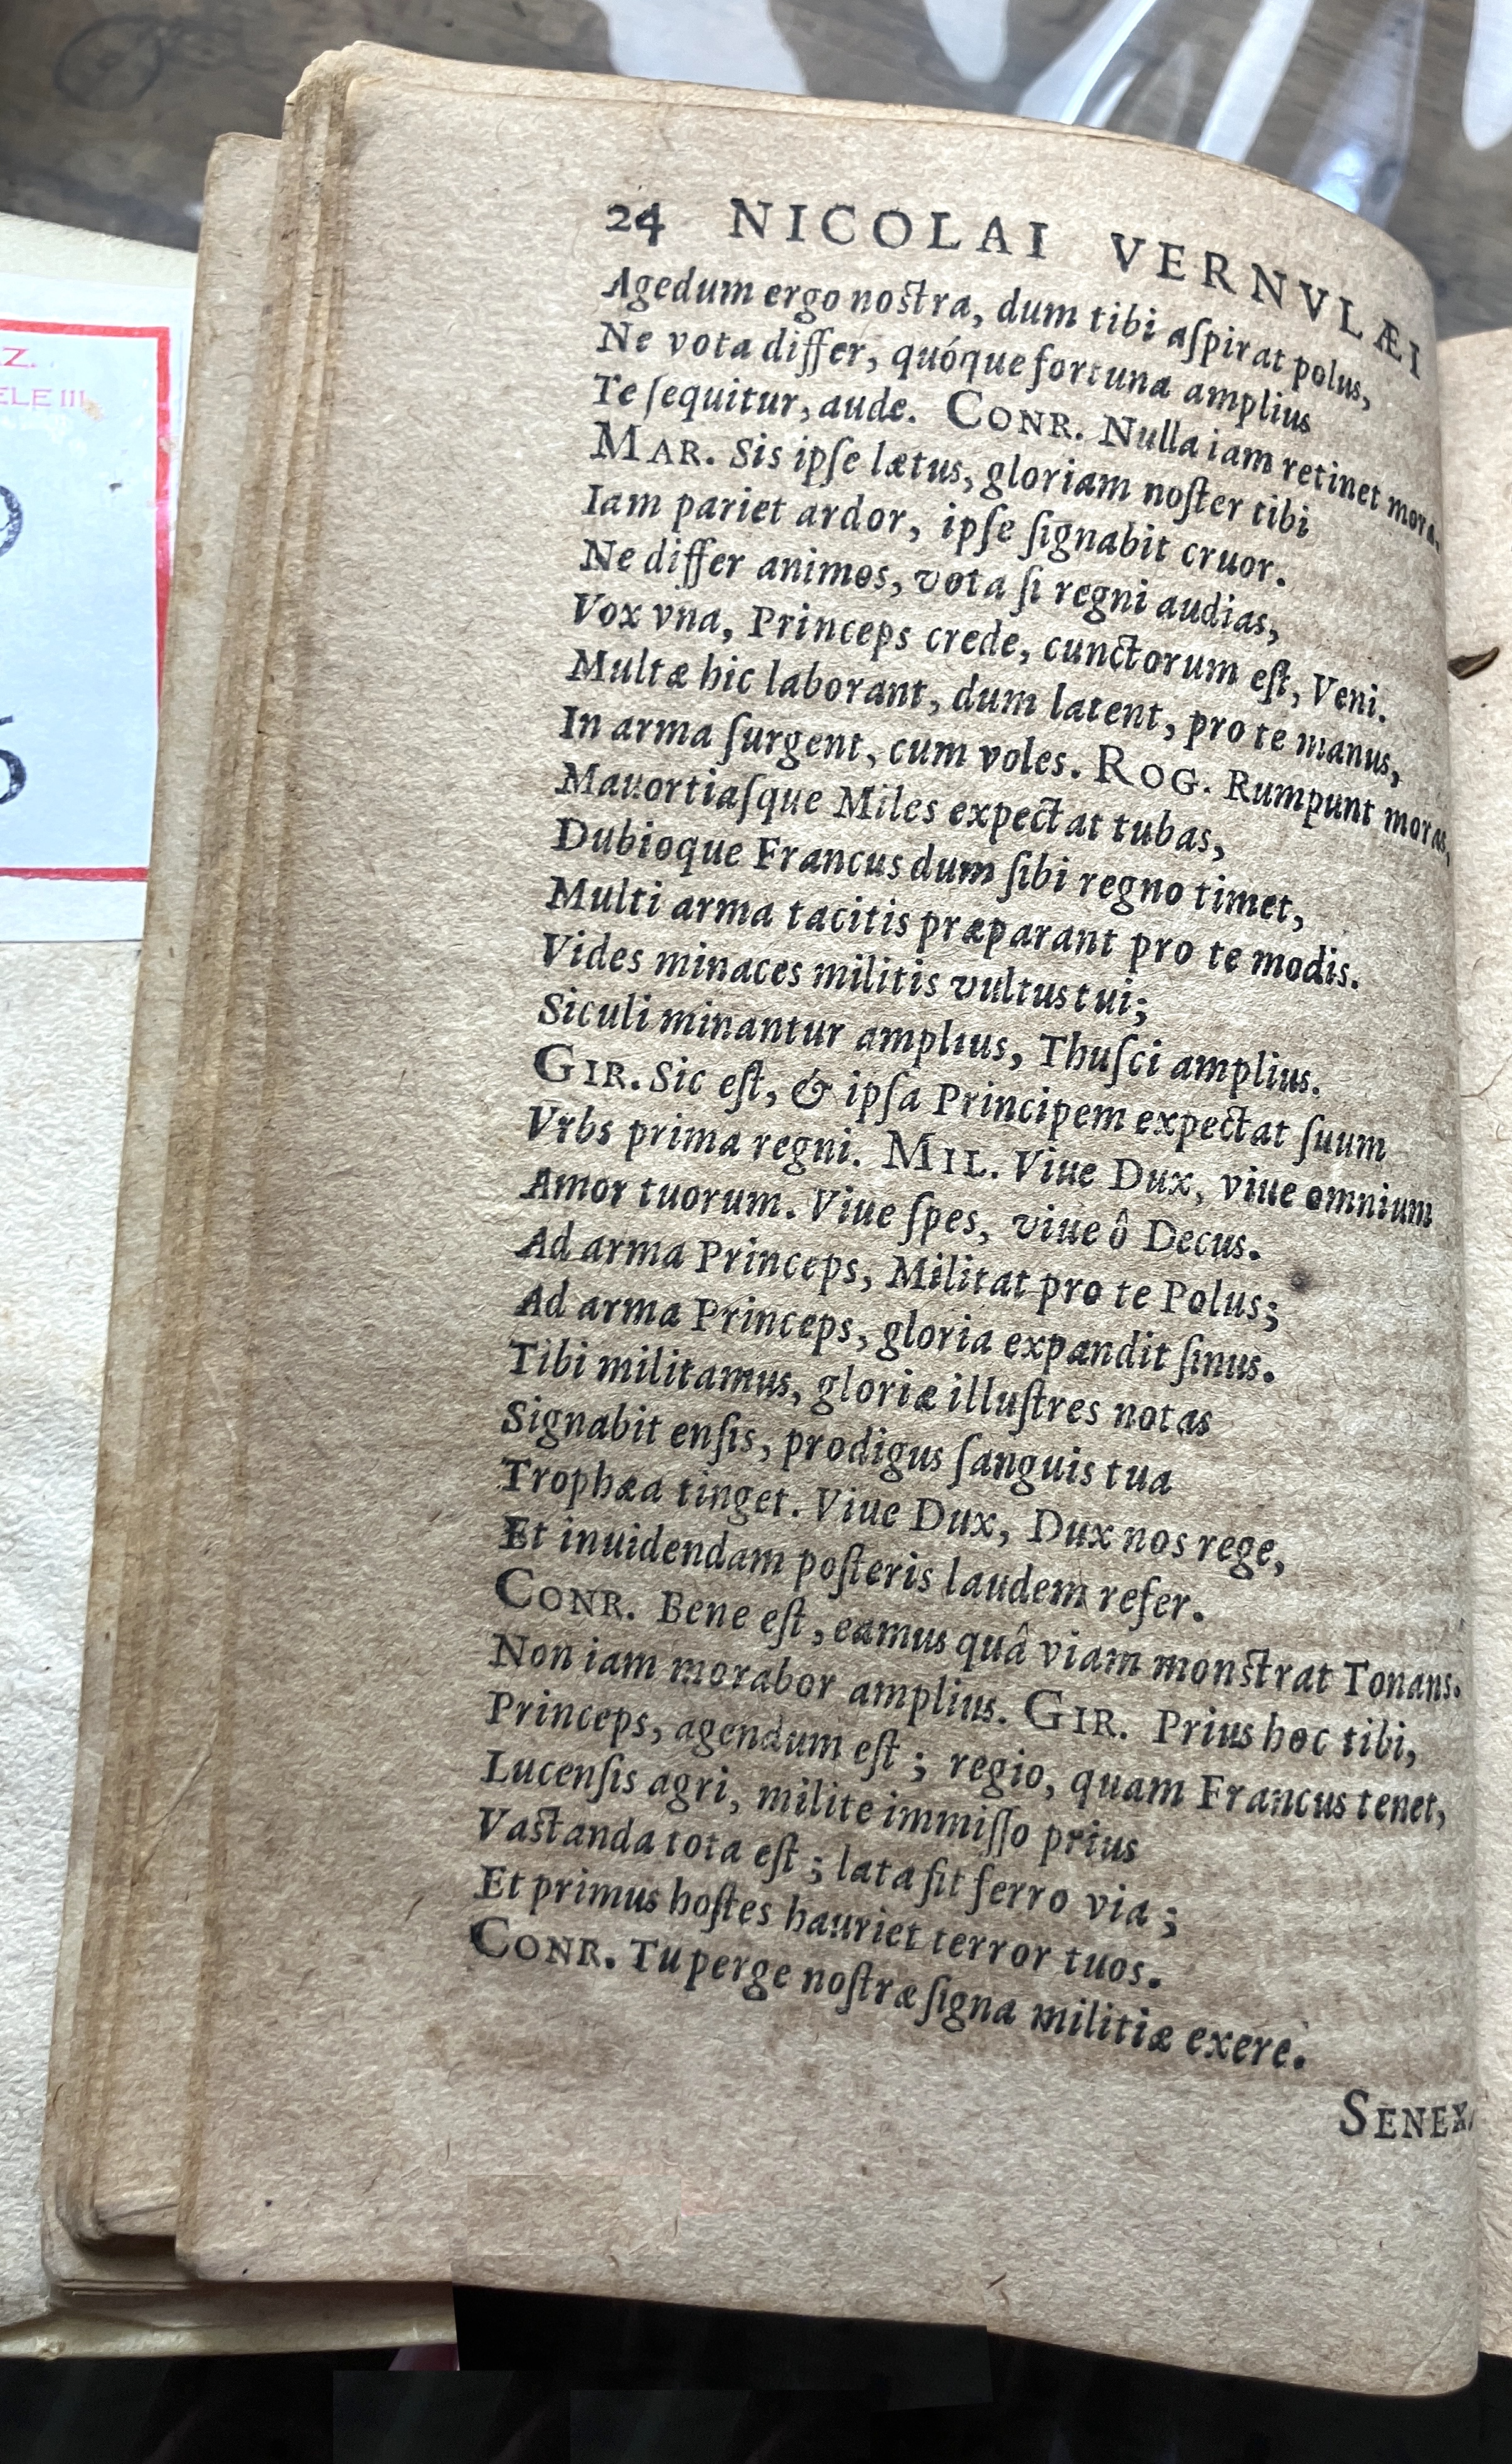 Z.
ELE III
24 NICOLAI VERNVLÆI
Agedum ergo nostra, dum tibi aſpirat polus,
Ne vota differ, quóque fortuna amplius
Te ſequitur, aude. CONR. Nulla iam retinet mora.
MAR. Sis ipſe lætus, gloriam noſter tibi
Iam pariet ardor, ipſe ſignabit cruor.
Ne differ animos, vota ſi regni audias,
Vox vna, Princeps crede, cunctorum eſt, Veni.
Multæ hic laborant, dum latent, pro te manus,
In arma ſurgent, cum voles. ROG. Rumpunt moras,
Mauortiaſque Miles expectat tubas,
Dubioque Francus dum ſibi regno timet,
Multi arma tacitis præparant pro te modis.
Vides minaces militis vultus tui;
Siculi minantur amplius, Thuſci amplius.
GIR. Sic eſt, & ipſa Principem expectat ſuum
Vrbs prima regni. MIL. Viue Dux, viue omnium
Amor tuorum. Viue ſpes, viue ô Decus.
Ad arma Princeps, Militat pro te Polus;
Ad arma Princeps, gloria expandit ſinus.
Tibi militamus, gloriæ illuſtres notas
Signabit enſis, prodigus ſanguis tua
Trophæa tinget. Viue Dux, Dux nos rege,
Et inuidendam poſteris laudem refer.
CONR. Bene eſt, eamus quâ viam monstrat Tonans.
Non iam morabor amplius. GIR. Prius hoc tibi,
Princeps, agendum eſt; regio, quam Francus tenet,
Lucenſis agri, milite immiſſo prius
Vastanda tota eſt; lata ſit ferro via;
Et primus hoſtes hauriet terror tuos.
CONR. Tu perge noſtræ ſigna militiæ exere.
SENEX.